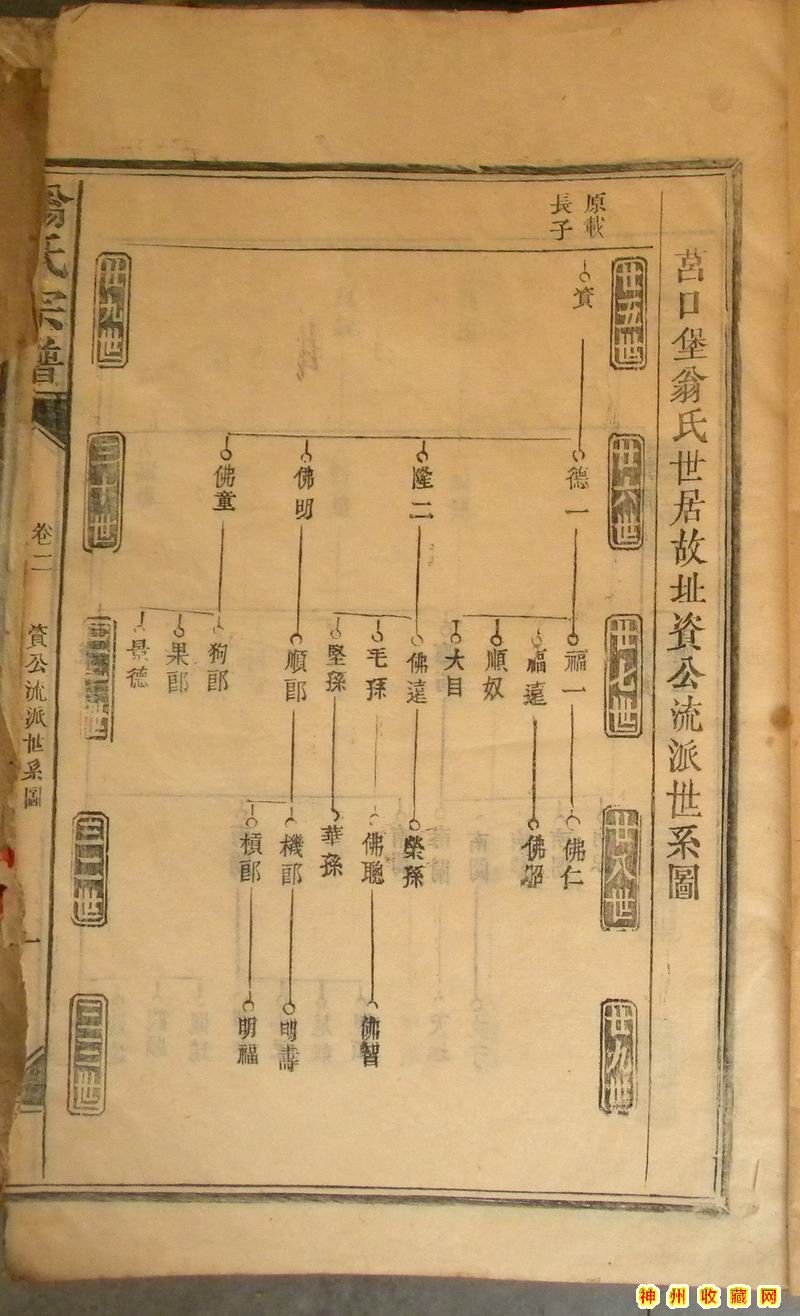 莒口堡翁氏世居故址資公流派世系圖
原載
長子
廿五世
廿六世
廿七世
廿八世
廿九世
資
德一
隆二
佛明
佛童
福一
福遠
順奴
大目
佛遠
毛孫
堅孫
順郎
狗郎
果郎
景德
佛仁
佛昭
榮孫
佛聰
華孫
機郎
槓郎
佛智
明壽
明福
廿九世
三十世
三二世
三三世
翁氏宗譜
卷二
資公流派世系圖
一
神州收藏网